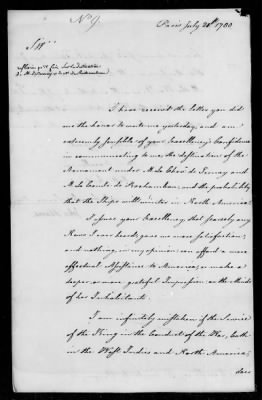 No. 9.
Paris July 21st 1780
Sir
I have received the Letter you did
me the honor to write me yesterday, and am
extremely sensible of your Excellency's Confidence
in communicating to me, the destination of the
Armament under M. le Chevr. de Ternay and
M. le Comte de Rochambeau; and the probability
that the Ships will winter in North America.
I assure your Excellency that scarcely any
News I ever heard, gave me more satisfaction;
and nothing, in my opinion, can afford a more
effectual Assistance to America, or make a
deeper or more grateful Impression on the Minds
of her Inhabitants.
I am infinitely mistaken if the Service
of the King in the Conduct of the War, both
in the West Indies and North America,
does